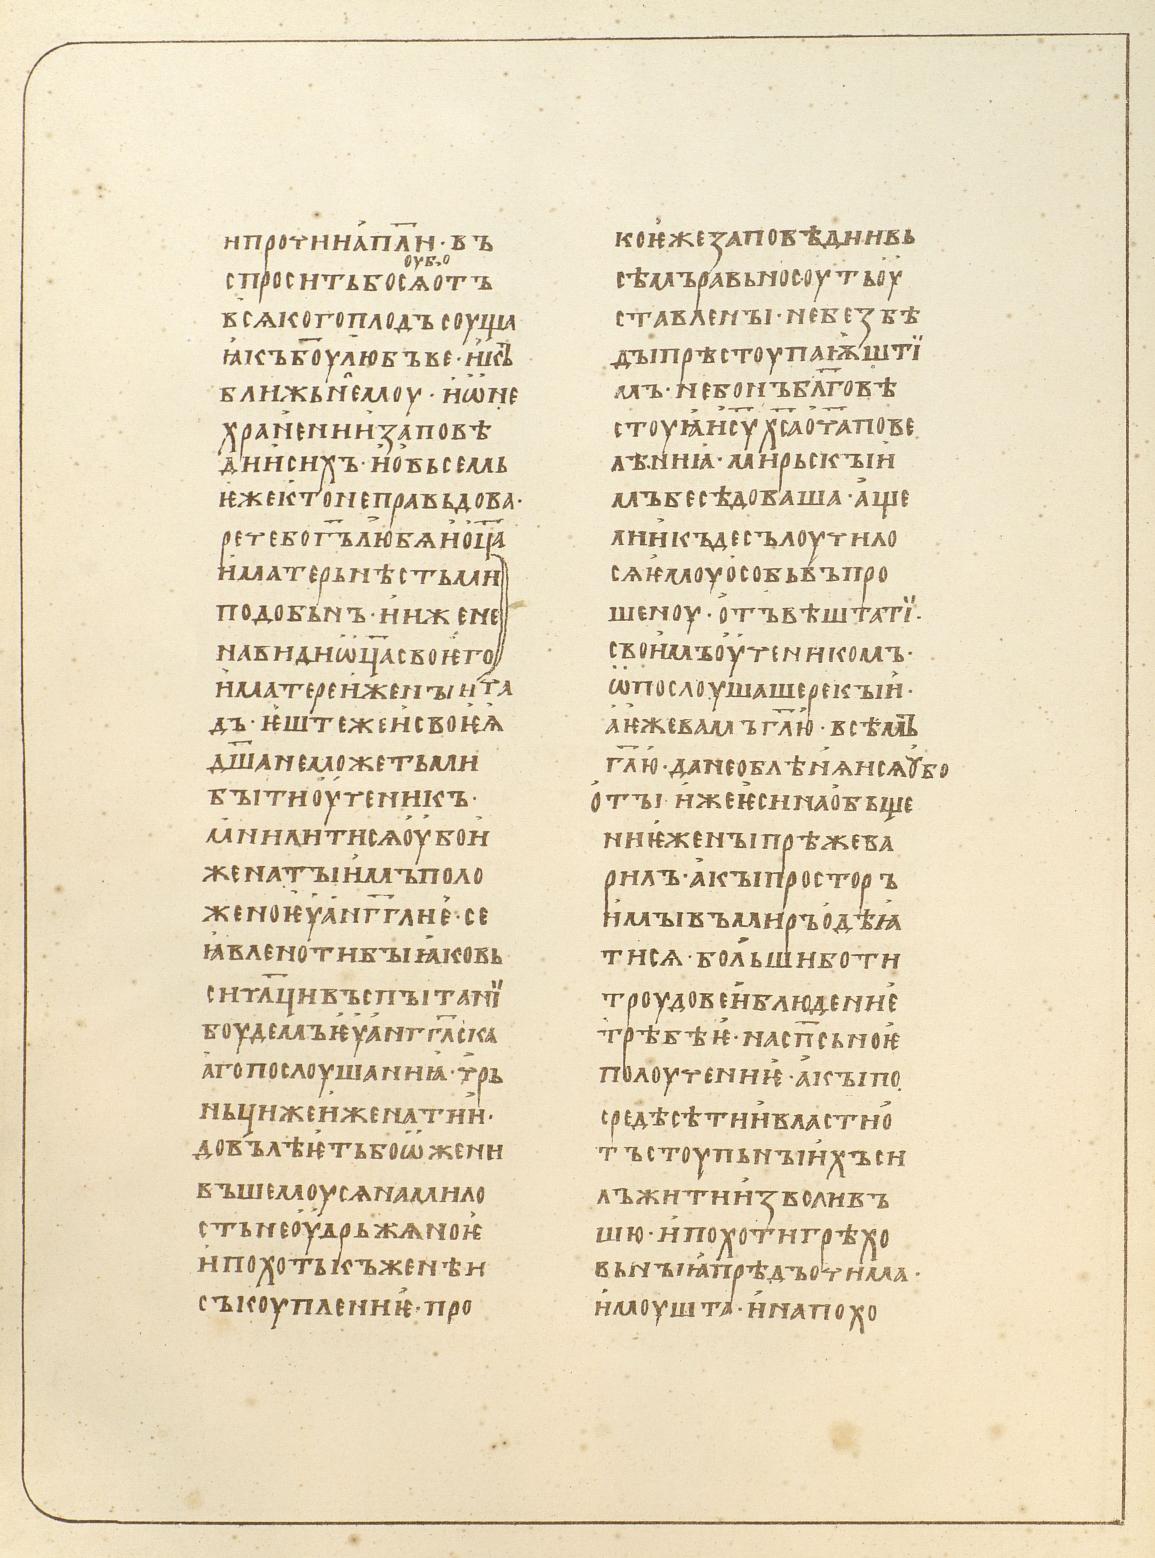 ипрочинапл҃и·въ
оубо
спроситьбосѧотъ
всѧкогоплодъсоуща
ꙗкъбоулюбъве·ꙗкъ
ближьнемоу·иѡне
храненнизаповѣ
днисихъ·новьсемь
ѥжектонеправьдова·
речебогъ҃любѧиоц҃а
иматерьнѣстьмн
подобьнъ·ииженене
навидиѡц҃асвоѥго
иматереиженыичѧ
дъ·ѥштежеисвоѥѧ
дш҃анеможетьми
бытиоученикъ·
мнилитисѧоубои
женатыимъполо
женоѥуанг҃глиѥ·се
ꙗвленотибыꙗковь
сичл҃цивъспытании
боудемъѥуангг҃лска
агопослоушаниꙗ·чрь
ньциижеиженатии·
довълѣѥтьбоѡжени
въшемоусѧнамило
стьнеоудрьжѧноѥ
ипохотькъженѣи
съкоуплениѥ·про
коѥжезаповѣдиивь
сѣмъравьносоутьоу
ставлены·небезбѣ
дыпрѣстоупаѭштї
мъ·небонъбл҃говѣ
стоуꙗис҃ух҃саотапове
лѣниꙗ·мирьскыи
мъбесѣдоваша·аще
лииикъдесълоучило
сѧѥмоуособьвъпро
шеноу·отъвѣштатї·
своимъоученикомъ·
ѡпослоушашерекыи·
аѥжевамъгл҃ю·всѣмъ
гл҃ю·данеоблѣнѧисѧꙋбо
оты·ижеѥсинаобьще
ниѥженыпрѣжева
рилъ·акыпросторъ
имывъмиръодѣꙗ
тисѧ·большиботи
троудовеиблюдениѥ
трѣбѣѥ·насп҃сьноѥ
полоучениѥ·акыпо
средѣсѣтиивластио
тъстоупьныихъси
лъжитииизволивъ
шю·ипохотигрѣхо
вьныꙗпрѣдъочима·
имоушта·инапохо